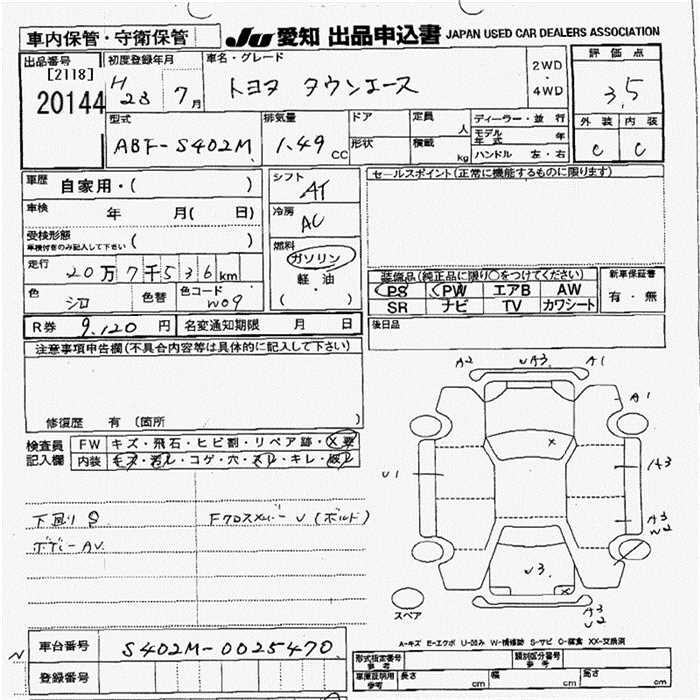 車内保管・守衛保管
JU 愛知 出品申込書 JAPAN USED CAR DEALERS ASSOCIATION
出品番号 [2118] 20144
初度登録年月 H 23 7月
車名・グレード トヨタ タウンエース
2WD・4WD
評価点 3.5
型式 ABF-S402M
排気量 1.49 CC
ドア 形状
定員 人 積載 kg
ディーラー・並行
モデル年式 年
ハンドル 左・右
外装 内装
C C
車歴 自家用・( )
シフト AT
セールスポイント(正常に機能するものに限ります)
車検 年 月( 日)
冷房 AC
受検形態 車検付きのみ記入して下さい ( )
燃料 ガソリン 軽油 ( )
走行 20万7千536km
色 シロ 色替 色コード W09
装備品(純正品に限り○をつけてください)
PS PW エアB AW
SR ナビ TV カワシート
新車保証書 有・無
R券 9,120円 名変通知期限 月 日
後日品
注意事項申告欄(不具合内容等は具体的に記入して下さい)
修復歴 有 (箇所
検査員記入欄
FW キズ・飛石・ヒビ割・リペア跡・X要
内装 キズ・汚レ・コゲ・穴・スレ・キレ・
A2 UA3. A1
A1
U1
A3
A3
W2
U3.
A3
U2
スペア
下回り S Fクロスメンバー U (ボルト)
ボディーAU
A-キズ E-エクボ U-凹み W-補修跡 S-サビ C-腐食 XX-交換済
N 車台番号 S402M-0025470
登録番号
型式指定番号 参考 類別区分番号 参考
車庫証明用 参考 長さ cm 幅 cm 高さ cm